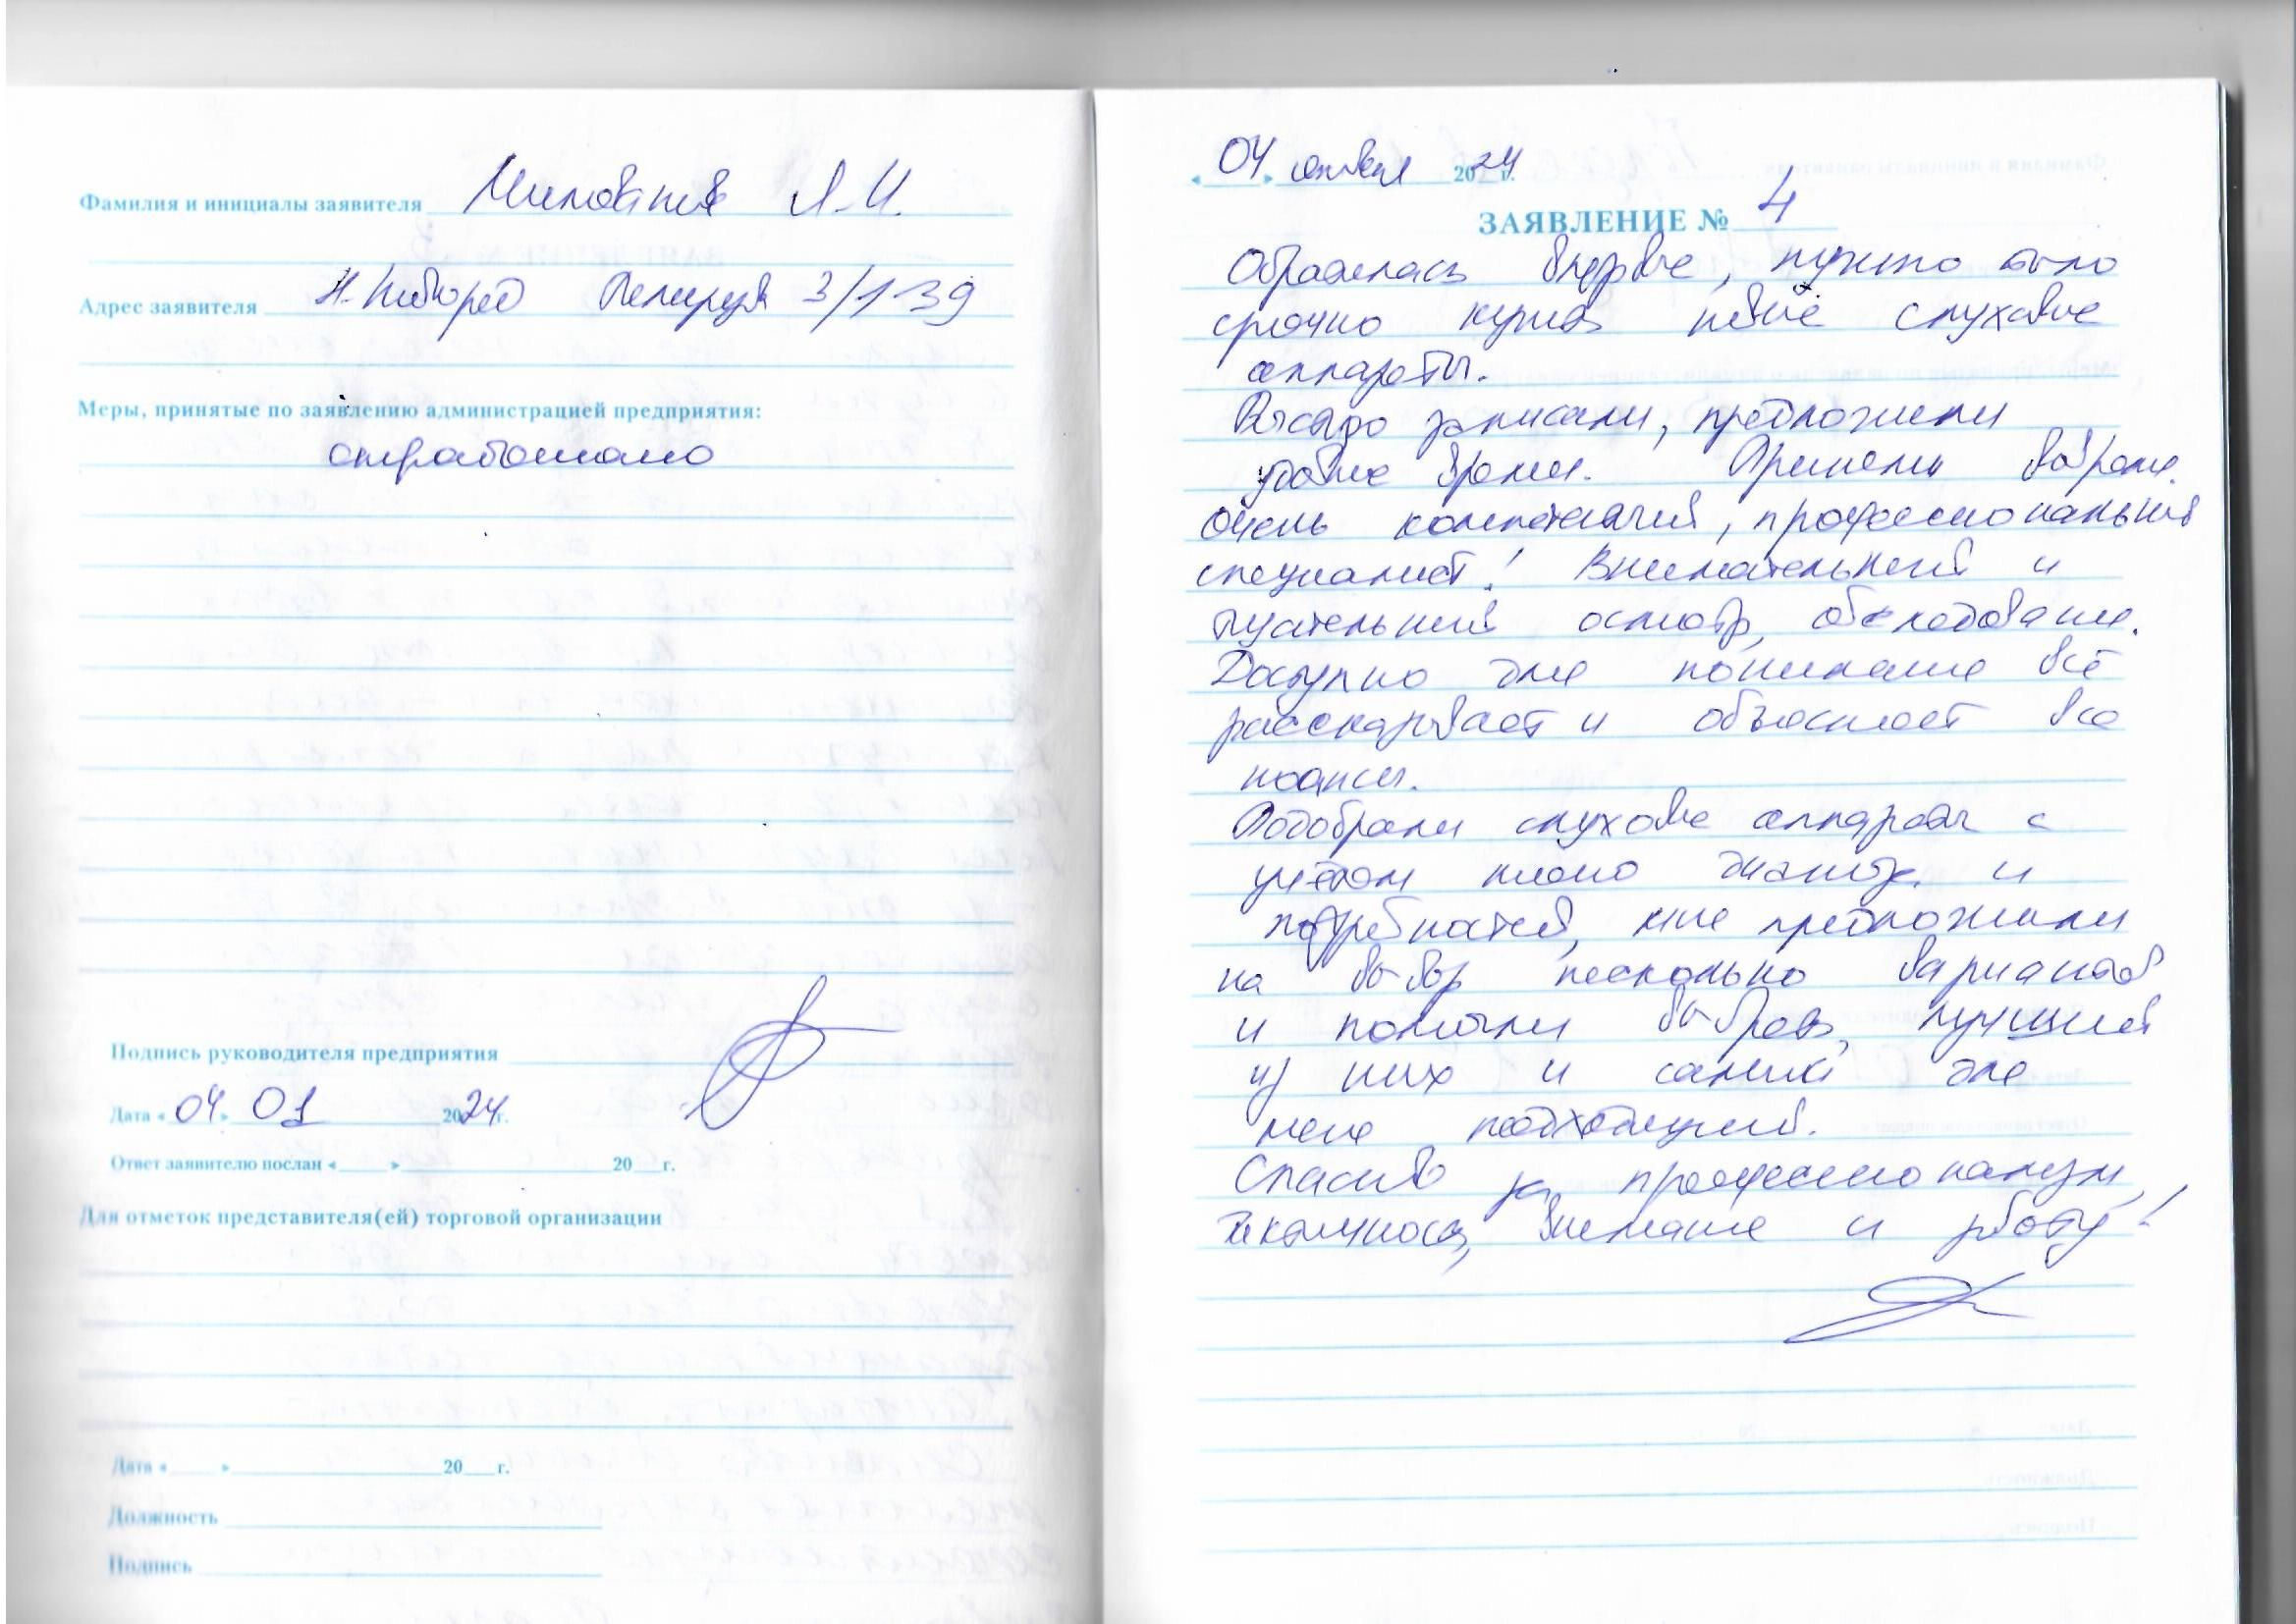 Фамилия и инициалы заявителя
Адрес заявителя Н. Новгород 3/1 39
Меры, принятые по заявлению администрацией предприятия:
отработано
Подпись руководителя предприятия
Дата «04» 01 2024 г.
Ответ заявителю послан « » 20 г.
Для отметок представителя(ей) торговой организации
Дата « » 20 г.
Должность
Подпись
«04» января 2024 г.
ЗАЯВЛЕНИЕ № 4
Обратилась впервые, нужно было
срочно купить новые слуховые
аппараты.
Быстро записали, предложили
удобное время. Приняли вовремя.
Очень компетентный, профессиональный
специалист! Внимательный и
тщательный осмотр, обследование.
Доступно для понимания всё
рассказывает и объясняет все
нюансы.
Подобрали слуховые аппараты с
учётом моего диагноза и
потребностей, мне предложили
на выбор несколько вариантов
и помогли выбрать лучший
из них и самый для
меня подходящий.
Спасибо за профессионализм,
тактичность, внимание и работу!